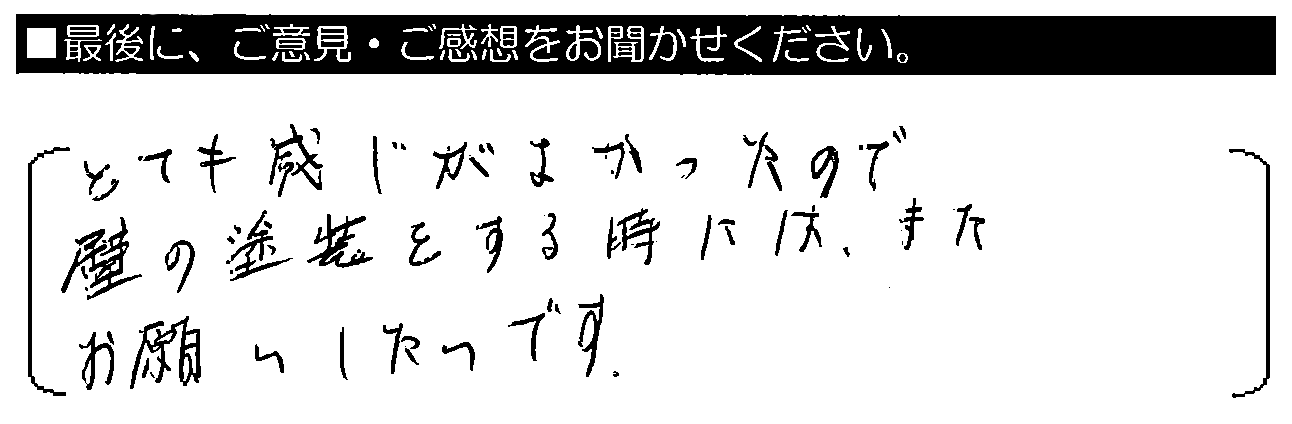 ■最後に、ご意見・ご感想をお聞かせください。
とても感じがよかったので
壁の塗装をする時には、また
お願いしたいです.